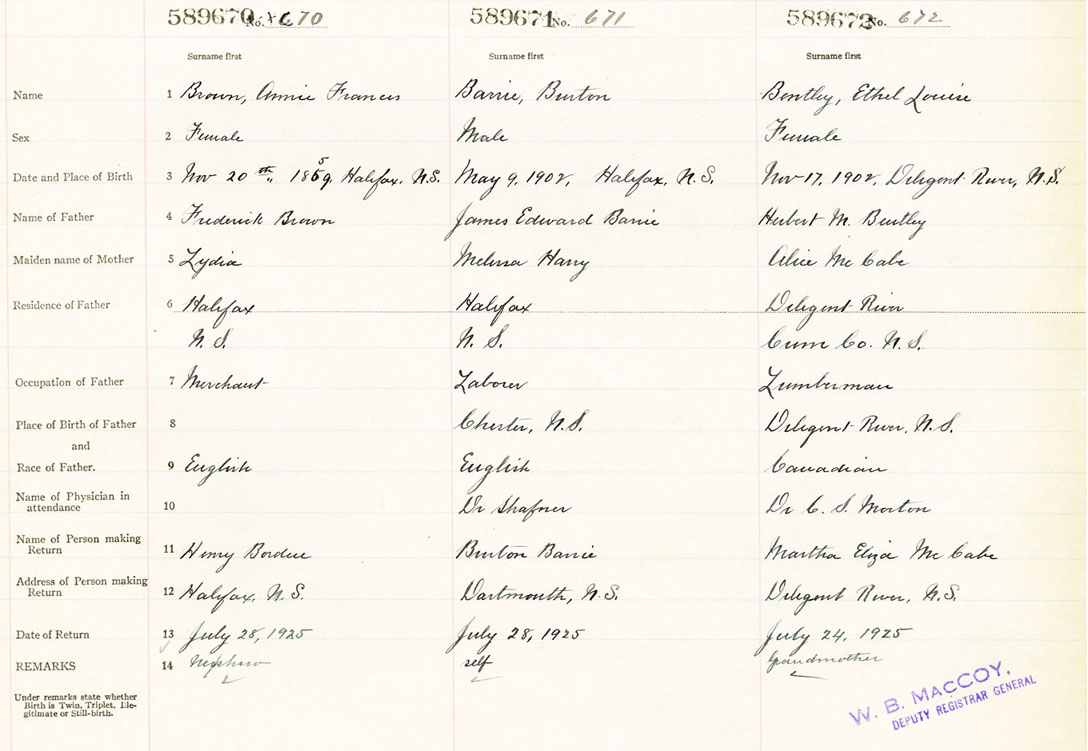 589670 No. 670 589671 No. 671 589672 No. 672
Surname first Surname first Surname first
Name 1 Brown, Annie Frances Barrie, Burton Bentley, Ethel Louise
Sex 2 Female Male Female
Date and Place of Birth 3 Nov 20th, 1859, Halifax, N.S. May 9, 1902, Halifax, N.S. Nov 17, 1902, Deligent River, N.S.
Name of Father 4 Frederick Brown James Edward Barrie Herbert M. Bentley
Maiden name of Mother 5 Lydia Melissa Harry Alice McCabe
Residence of Father 6 Halifax Halifax Deligent River
N.S. N.S. Cum Co. N.S.
Occupation of Father 7 Merchant Laborer Lumberman
Place of Birth of Father 8 Chester, N.S. Deligent River, N.S.
and
Race of Father. 9 English English Canadian
Name of Physician in
attendance 10 Dr Shafner Dr C. S. Morton
Name of Person making
Return 11 Henry Burton Barrie Martha Eliza McCabe
Address of Person making
Return 12 Halifax, N.S. Dartmouth, N.S. Deligent River, N.S.
Date of Return 13 July 28, 1925 July 28, 1925 July 24, 1925
REMARKS 14 Nephew self Grandmother
Under remarks state whether
Birth is Twin, Triplet, Ille-
gitimate or Still-birth.
W. B. MACCOY,
DEPUTY REGISTRAR GENERAL